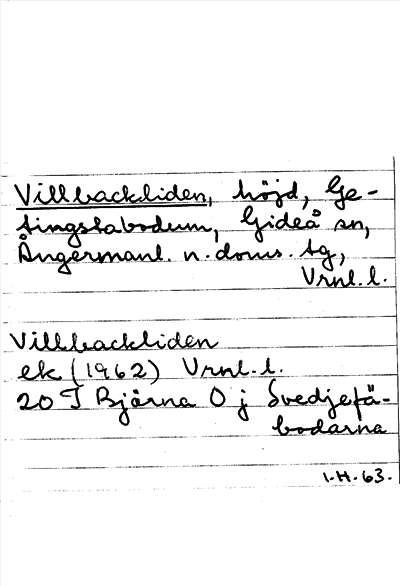 Villbackliden, höjd, Ge-
tingstabodum, Gideå sn,
Ångermanl. n. doms. tg,
Vrnl. l.
Villbackliden
ek (1962) Vrnl. l.
20 I Björna O j Svedjefä-
bodarna
1.H.63.